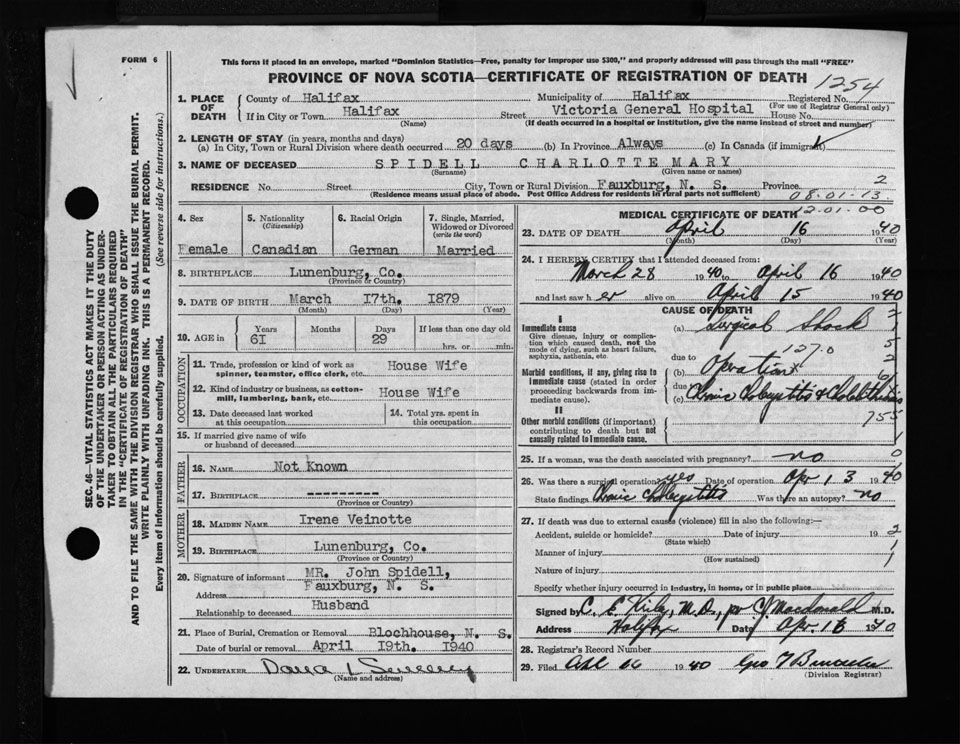 FORM 6
This form if placed in an envelope, marked "Dominion Statistics—Free, penalty for improper use $300," and properly addressed will pass through the mail "FREE"
PROVINCE OF NOVA SCOTIA—CERTIFICATE OF REGISTRATION OF DEATH
1254
1. PLACE OF DEATH
County of Halifax
Municipality of Halifax
Registered No.
(For use of Registrar General only)
If in City or Town Halifax
(Name)
Street Victoria General Hospital House No.
(If death occurred in a hospital or institution, give the name instead of street and number)
2. LENGTH OF STAY (in years, months and days)
(a) In City, Town or Rural Division where death occurred 20 days (b) In Province Always (c) In Canada (if immigrant)
3. NAME OF DECEASED SPIDELL CHARLOTTE MARY
(Surname) (Given name or names)
RESIDENCE No. Street City, Town or Rural Division Fauxburg, N. S. Province 2
(Residence means usual place of abode. Post Office Address for residents in rural parts not sufficient)
08-01-13
12-01-00
SEC. 46—VITAL STATISTICS ACT MAKES IT THE DUTY
OF THE UNDERTAKER OR PERSON ACTING AS UNDERTAKER
TO OBTAIN ALL THE PARTICULARS REQUIRED
IN THE "CERTIFICATE OF REGISTRATION OF DEATH"
AND TO FILE THE SAME WITH THE DIVISION REGISTRAR WHO SHALL ISSUE THE BURIAL PERMIT.
WRITE PLAINLY WITH UNFADING INK. THIS IS A PERMANENT RECORD.
Every item of information should be carefully supplied. (See reverse side for instructions.)
4. Sex
Female
5. Nationality
(Citizenship)
Canadian
6. Racial Origin
German
7. Single, Married, Widowed or Divorced
(write the word)
Married
8. BIRTHPLACE Lunenburg, Co.
(Province or Country)
9. DATE OF BIRTH March 17th. 1879
(Month) (Day) (Year)
10. AGE in
Years Months Days If less than one day old
61 29 hrs. or min.
OCCUPATION
11. Trade, profession or kind of work as spinner, teamster, office clerk, etc. House Wife
12. Kind of industry or business, as cotton-mill, lumbering, bank, etc. House Wife
13. Date deceased last worked at this occupation
14. Total yrs. spent in this occupation
15. If married give name of wife or husband of deceased
FATHER
16. NAME Not Known
17. BIRTHPLACE ----------
(Province or Country)
MOTHER
18. MAIDEN NAME Irene Veinotte
19. BIRTHPLACE Lunenburg, Co.
(Province or Country)
20. Signature of informant MR. John Spidell,
Address Fauxburg, N. S.
Relationship to deceased Husband
21. Place of Burial, Cremation or Removal Blochhouse, N. S.
Date of burial or removal April 19th. 1940
22. UNDERTAKER
(Name and address)
MEDICAL CERTIFICATE OF DEATH
23. DATE OF DEATH April 16 1940
(Month) (Day) (Year)
24. I HEREBY CERTIFY that I attended deceased from:
March 28 1940 to April 16 1940
and last saw her alive on April 15 1940
CAUSE OF DEATH
I
Immediate cause
Give disease, injury or complication which caused death, not the mode of dying, such as heart failure, asphyxia, asthenia, etc.
(a) Surgical Shock
due to 127.0
Morbid conditions, if any, giving rise to immediate cause (stated in order proceeding backwards from immediate cause).
(b) Operation
due to
(c) Chronic Cholecystitis & Cholelithiasis
II
Other morbid conditions (if important) contributing to death but not causally related to immediate cause.
755
25. If a woman, was the death associated with pregnancy? no
26. Was there a surgical operation? yes Date of operation Apr. 13 1940
State findings Chronic Cholecystitis Was there an autopsy? no
27. If death was due to external causes (violence) fill in also the following:—
Accident, suicide or homicide? Date of injury 19
(State which)
Manner of injury
(How sustained)
Nature of injury
Specify whether injury occurred in industry, in home, or in public place
Signed by C. E. M.D., per C Macdonald M.D.
Address Halifax Date Apr. 16 1940
28. Registrar's Record Number
29. Filed 1940 Geo
(Division Registrar)